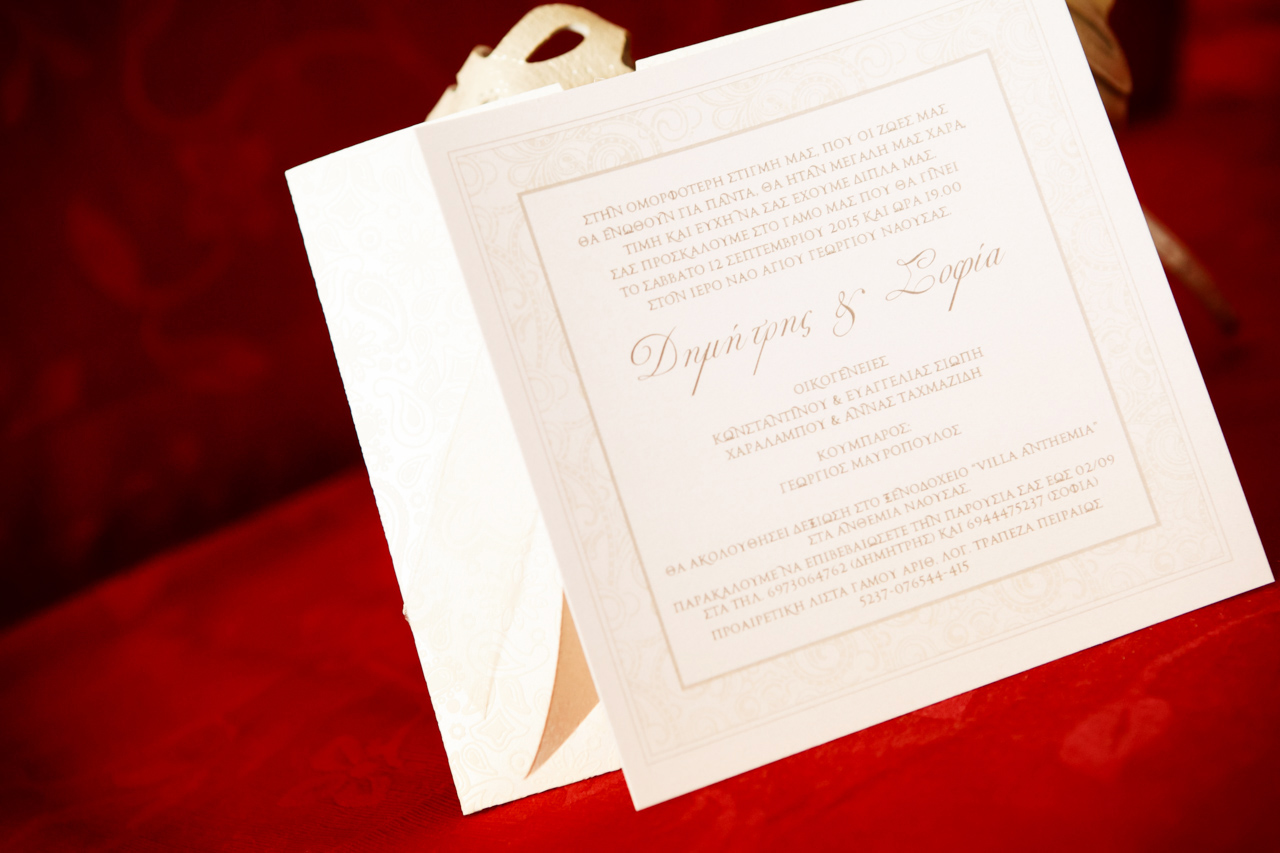 ΣΤΗΝ ΟΜΟΡΦΟΤΕΡΗ ΣΤΙΓΜΗ ΜΑΣ, ΠΟΥ ΟΙ ΖΩΕΣ ΜΑΣ
ΘΑ ΕΝΩΘΟΥΝ ΓΙΑ ΠΑΝΤΑ, ΘΑ ΗΤΑΝ ΜΕΓΑΛΗ ΜΑΣ ΧΑΡΑ,
ΤΙΜΗ ΚΑΙ ΕΥΧΗ ΝΑ ΣΑΣ ΕΧΟΥΜΕ ΔΙΠΛΑ ΜΑΣ.
ΣΑΣ ΠΡΟΣΚΑΛΟΥΜΕ ΣΤΟ ΓΑΜΟ ΜΑΣ ΠΟΥ ΘΑ ΓΙΝΕΙ
ΤΟ ΣΑΒΒΑΤΟ 12 ΣΕΠΤΕΜΒΡΙΟΥ 2015 ΚΑΙ ΩΡΑ 19.00
ΣΤΟΝ ΙΕΡΟ ΝΑΟ ΑΓΙΟΥ ΓΕΩΡΓΙΟΥ ΝΑΟΥΣΑΣ.
Δημήτρης & Σοφία
ΟΙΚΟΓΕΝΕΙΕΣ
ΚΩΝΣΤΑΝΤΙΝΟΥ & ΕΥΑΓΓΕΛΙΑΣ ΣΙΩΠΗ
ΧΑΡΑΛΑΜΠΟΥ & ΑΝΝΑΣ ΤΑΧΜΑΖΙΔΗ
ΚΟΥΜΠΑΡΟΣ:
ΓΕΩΡΓΙΟΣ ΜΑΥΡΟΠΟΥΛΟΣ
ΘΑ ΑΚΟΛΟΥΘΗΣΕΙ ΔΕΞΙΩΣΗ ΣΤΟ ΞΕΝΟΔΟΧΕΙΟ "VILLA ANTHEMIA"
ΣΤΑ ΑΝΘΕΜΙΑ ΝΑΟΥΣΑΣ
ΠΑΡΑΚΑΛΟΥΜΕ ΝΑ ΕΠΙΒΕΒΑΙΩΣΕΤΕ ΤΗΝ ΠΑΡΟΥΣΙΑ ΣΑΣ ΕΩΣ 02/09
ΣΤΑ ΤΗΛ. 6973064762 (ΔΗΜΗΤΡΗΣ) ΚΑΙ 6944475237 (ΣΟΦΙΑ)
ΠΡΟΑΙΡΕΤΙΚΗ ΛΙΣΤΑ ΓΑΜΟΥ ΑΡΙΘ. ΛΟΓ. ΤΡΑΠΕΖΑ ΠΕΙΡΑΙΩΣ
5237-076544-415